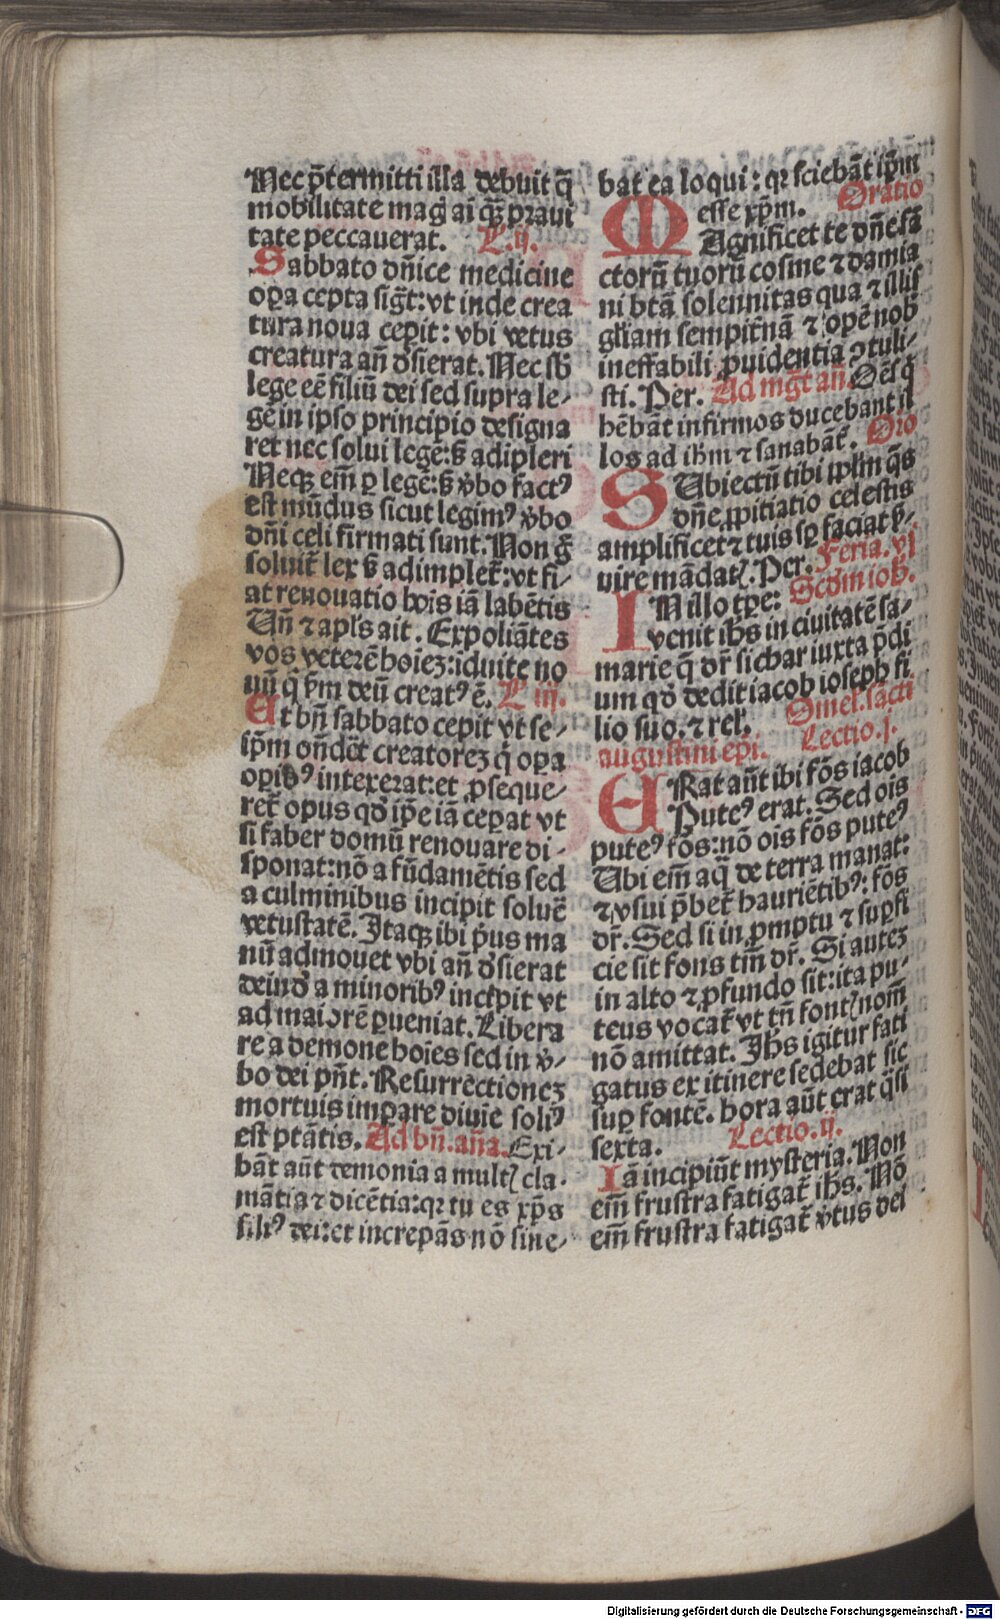 Nec p̄termitti illa debuit q̄
mobilitate mag̃ ai q̄ꝫ praui
tate peccauerat. L. ij.
Sabbato dn̄ice medicine
opa cepta sig̃t: vt inde crea
tura noua cepit: vbi vetus
creatura an̄ dsierat. Nec sb̄
lege eē filiū dei sed supra le⸗
gē in ipso principio designa
ret nec solui legē: sꝫ adipleri
Neqꝫ em̄ p legē: sꝫ v̄bo factꝰ
est mūdus sicut legimꝰ v̄bo
dn̄i celi firmati sunt. Non g̃
soluit̃ lex sꝫ adimplet̃: vt fi⸗
at renouatio hois iā labētis
Un̄ ⁊ apl̄s ait. Expoliātes
vos veterē hoieꝫ: iduite no
uū q̇ ẜm deū creatꝰ ē. L iij.
Et bn̄ sabbato cepit vt se⸗
ip̄m on̄dēt creatoreꝫ q̇ opa
opibꝰ intexerat: et ꝓseque⸗
ret̃ opus qd̄ ip̄e iā ceperat vt
si faber domū renouare di⸗
sponat: nō a fūdamētis sed
a culminibus incipit soluē
vetustatē. Itaqꝫ ibi p̄us ma
nū admouet vbi an̄ dsierat
deind̄ a minoribꝰ incipit vt
ad maiorē ꝑueniat. Libera
re a demone hoies sed in v̄⸗
bo dei pn̄t. Resurrectioneꝫ
mortuis impare diuīe soliꝰ
est ptātis. Ad bn̄. an̄a. Exi⸗
bāt aūt demonia a multꝭ cla⸗
mātia ⁊ dicētia: qꝛ tu es xp̄s
filiꝰ dei: et increpās nō sine⸗
bat ea loqui: qꝛ sciebāt ip̄m
esse xp̄m. Oratio
MAgnificet te dn̄e sā
ctorū tuorū cosme ⁊ damia
ni btā solennitas qua ⁊ illis
gl̄iam sempit̃nā ⁊ opē nob̄
ineffabili ꝓuidentia ꝯtuli⸗
sti. Per. Ad mg̃t an̄. Oēs q̇
hēbāt infirmos ducebant il
los ad ih̄m ⁊ sanabāt̃. Oro
SUbiectū tibi pp̄lm q̄s
dn̄e ꝓpitiatio celestis
amplificet ⁊ tuis sp̄ faciat ẜ⸗
uire mādatꝭ. Per. Feria. vj
Scd̄m ioh̄.
IN illo tp̄e:
venit ih̄s in ciuitatē sa⸗
marie q̄ dr̄ sichar iuxta p̄di
um qd̄ dedit iacob ioseph fi
lio suo. ⁊ rel̄. Omel. sācti
augustini epi. Lectio. j.
ERat aūt ibi fōs iacob
Puteꝰ erat. Sed ois
puteꝰ fōs: nō ois fōs puteꝰ
Ubi em̄ aq̄ de terra manat:
⁊ vsui p̄bet̃ hauriētibꝰ: fōs
dr̄. Sed si in ꝓmptu ⁊ supfi
cie sit fons tm̄ dr̄. Si auteꝫ
in alto ⁊ ꝓfundo sit: ita pu⸗
teus vocat̃ vt tn̄ fontꝭ nom̄
nō amittat. Ih̄s igitur fati
gatus ex itinere sedebat sic
sup fontē. hora aūt erat q̄si
sexta. Lectio. ij.
Iā incipiūt mysteria. Non
em̄ frustra fatigat̃ ih̄s. Nō
em̄ frustra fatigat̃ v̄tus dei
Digitalisierung gefördert durch die Deutsche Forschungsgemeinschaft - DFG